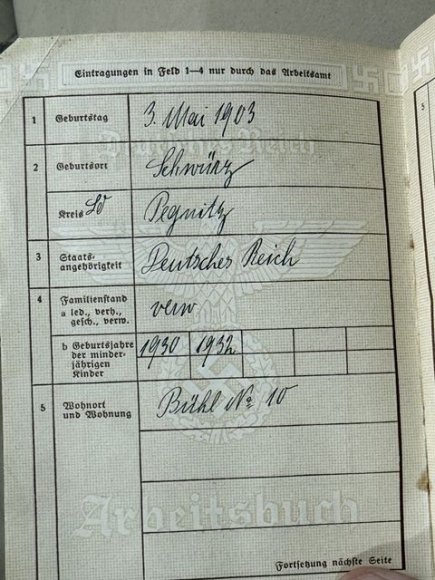 Eintragungen in Feld 1–4 nur durch das Arbeitsamt
1 Geburtstag 3. Mai 1903
2 Geburtsort Schwürz
Kreis Ld Pegnitz
3 Staats-
angehörigkeit Deutsches Reich
4 Familienstand
a led., verh.,
gesch., verw. verw
b Geburtsjahre
der minder-
jährigen
Kinder 1930 1932
5 Wohnort
und Wohnung Bühl No 10
Deutsches Reich
Arbeitsbuch
Fortsetzung nächste Seite
5